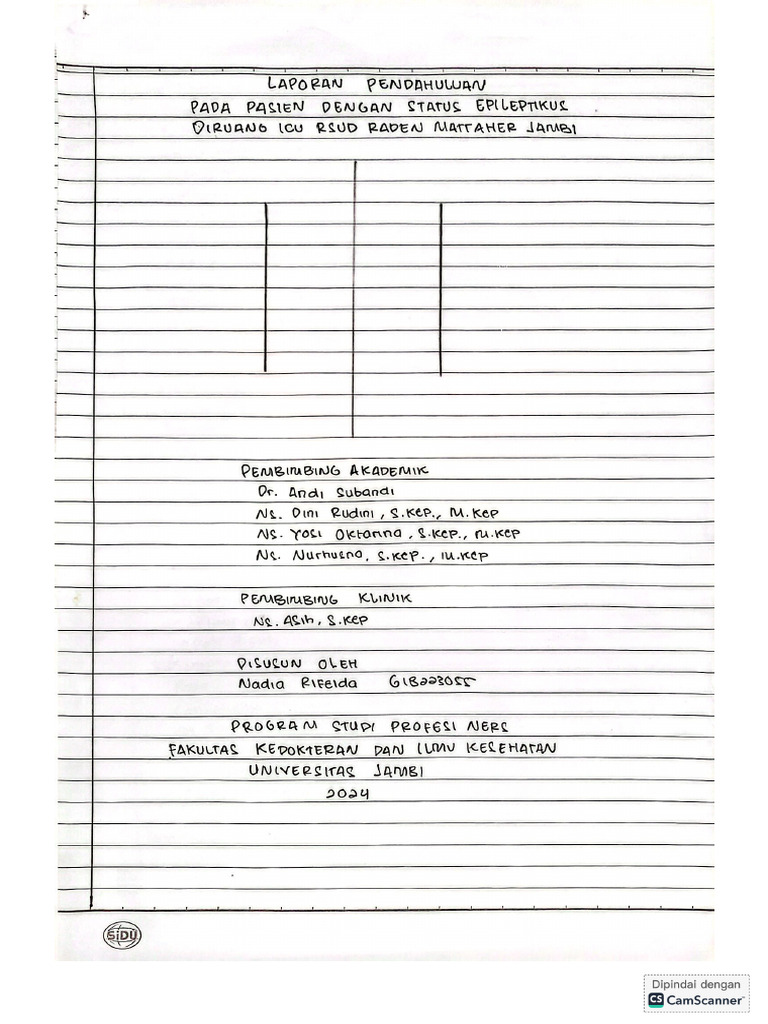 LAPORAN PENDAHULUAN
PADA PASIEN DENGAN STATUS EPILEPTIKUS
DIRUANG ICU RSUD RADEN MATTAHER JAMBI
PEMBIMBING AKADEMIK
Dr. Andi Subandi
Ns. Dini Rudini, S.Kep., M.Kep
Ns. Yosi Oktarina, S.Kep., M.Kep
Ns. Nurhusna, S.Kep., M.Kep
PEMBIMBING KLINIK
Ns. Asih, S.Kep
DISUSUN OLEH
Nadia Rifelda G1B223055
PROGRAM STUDI PROFESI NERS
FAKULTAS KEDOKTERAN DAN ILMU KESEHATAN
UNIVERSITAS JAMBI
2024
SIDU
Dipindai dengan
CS CamScanner